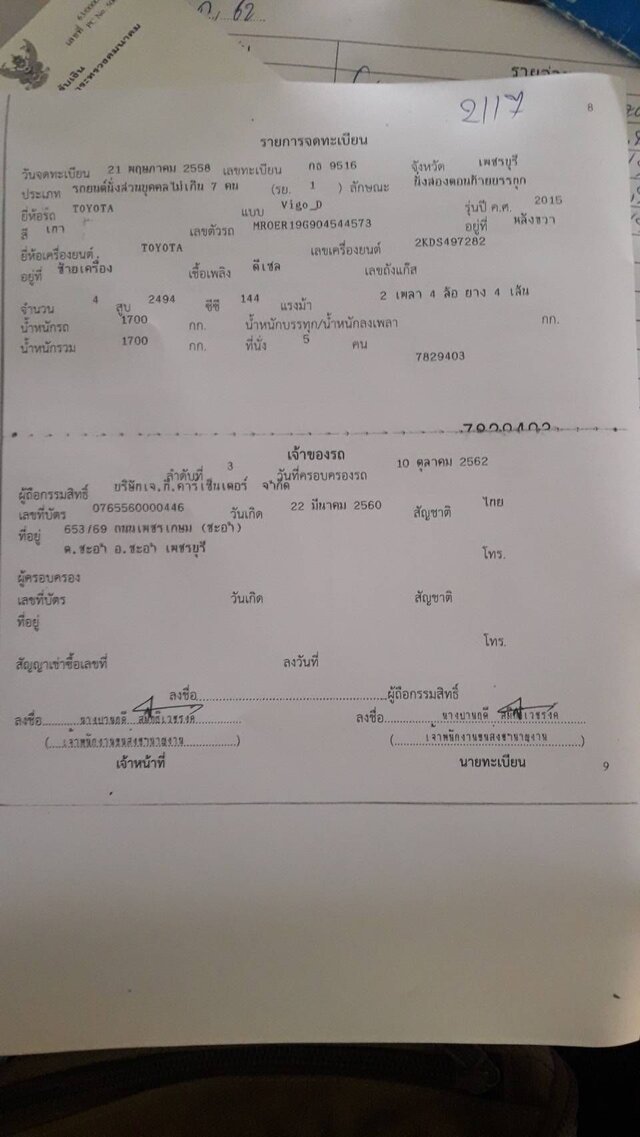 ก.ย. 62
รายจ่าย
2117
8
รายการจดทะเบียน
วันจดทะเบียน 21 พฤษภาคม 2558 เลขทะเบียน กอ 9516 จังหวัด เพชรบุรี
ประเภท รถยนต์นั่งส่วนบุคคลไม่เกิน 7 คน (รย. 1 ) ลักษณะ นั่งสองตอนท้ายบรรทุก
ยี่ห้อรถ TOYOTA แบบ Vigo_D รุ่นปี ค.ศ. 2015
สี เทา เลขตัวรถ MROER19G904544573 อยู่ที่ หลังขวา
ยี่ห้อเครื่องยนต์ TOYOTA เลขเครื่องยนต์ 2KDS497282
อยู่ที่ ซ้ายเครื่อง เชื้อเพลิง ดีเซล เลขถังแก๊ส
จำนวน 4 สูบ 2494 ซีซี 144 แรงม้า 2 เพลา 4 ล้อ ยาง 4 เส้น
น้ำหนักรถ 1700 กก. น้ำหนักบรรทุก/น้ำหนักลงเพลา กก.
น้ำหนักรวม 1700 กก. ที่นั่ง 5 คน
7829403
เจ้าของรถ
ลำดับที่ 3 วันที่ครอบครองรถ 10 ตุลาคม 2562
ผู้ถือกรรมสิทธิ์ บริษัทเจ.ที.คาร์เซ็นเตอร์ จำกัด
เลขที่บัตร 0765560000446 วันเกิด 22 มีนาคม 2560 สัญชาติ ไทย
ที่อยู่ 653/69 ถนนเพชรเกษม (ชะอำ)
ต.ชะอำ อ.ชะอำ เพชรบุรี
โทร.
ผู้ครอบครอง
เลขที่บัตร วันเกิด สัญชาติ
ที่อยู่
โทร.
สัญญาเช่าซื้อเลขที่ ลงวันที่
ลงชื่อ ผู้ถือกรรมสิทธิ์
ลงชื่อ ลงชื่อ
(เจ้าพนักงานขนส่งชำนาญงาน) (เจ้าพนักงานขนส่งชำนาญงาน)
เจ้าหน้าที่ นายทะเบียน
9